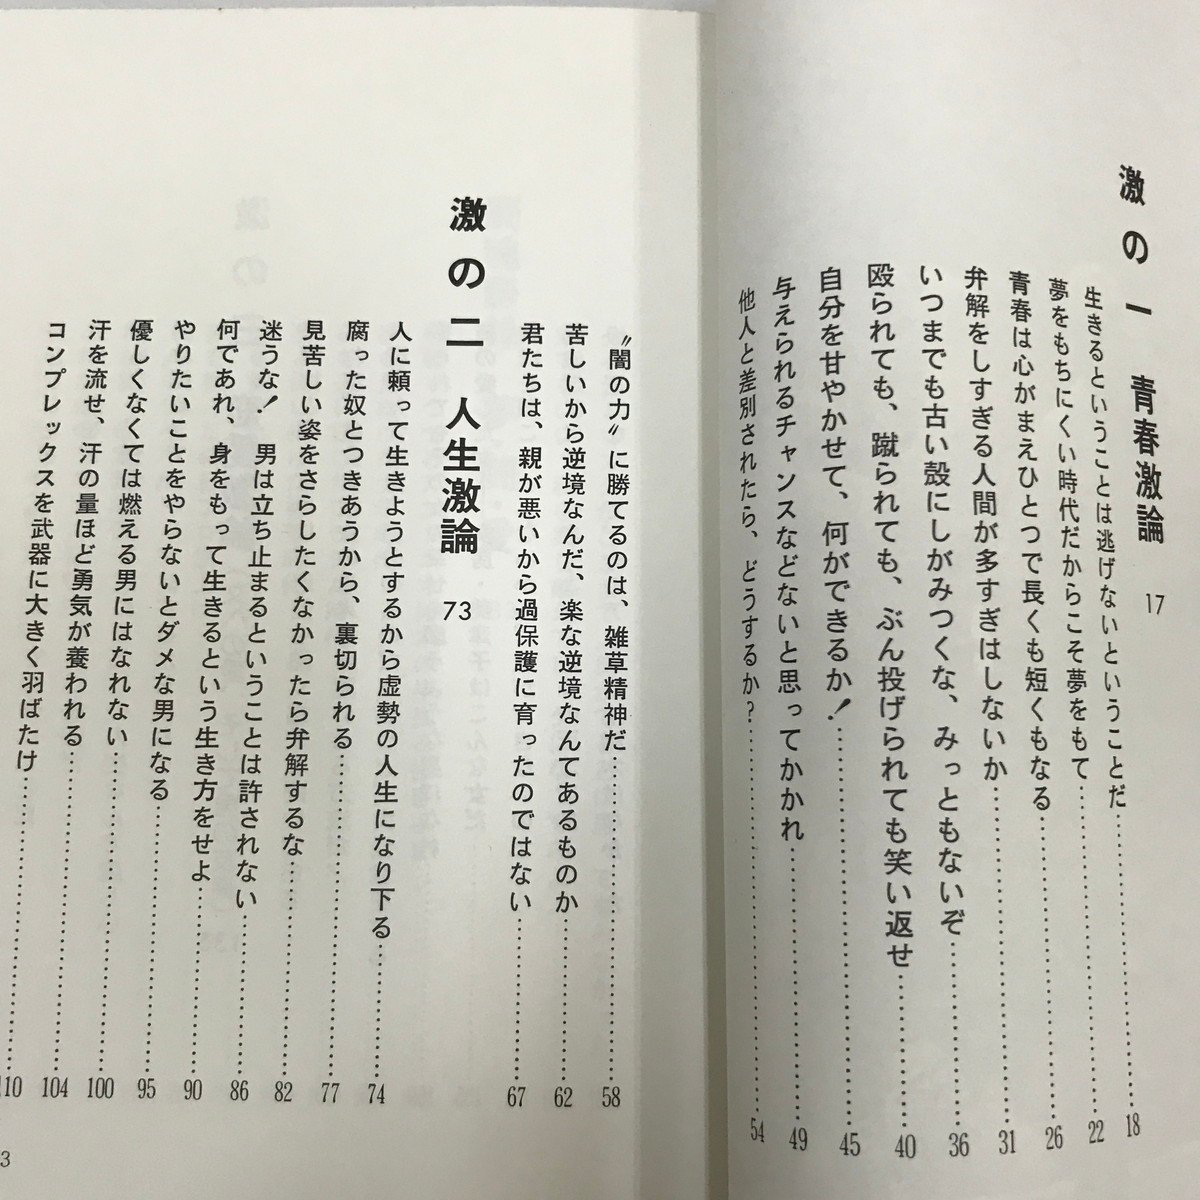 激の一 青春激論 17
生きるということは逃げないということだ……18
夢をもちにくい時代だからこそ夢をもて……22
青春は心がまえひとつで長くも短くもなる……26
弁解をしすぎる人間が多すぎはしないか……31
いつまでも古い殻にしがみつくな、みっともないぞ……36
殴られても、蹴られても、ぶん投げられても笑い返せ……40
自分を甘やかせて、何ができるか!……45
与えられるチャンスなどないと思ってかかれ……49
他人と差別されたら、どうするか?……54
〝闇の力〟に勝てるのは、雑草精神だ……58
苦しいから逆境なんだ、楽な逆境なんてあるものか……62
君たちは、親が悪いから過保護に育ったのではない……67
激の二 人生激論 73
人に頼って生きようとするから虚勢の人生になり下る……74
腐った奴とつきあうから、裏切られる……77
見苦しい姿をさらしたくなかったら弁解するな……82
迷うな! 男は立ち止まるということは許されない……86
何であれ、身をもって生きるという生き方をせよ……90
やりたいことをやらないとダメな男になる……95
優しくなくては燃える男にはなれない……100
汗を流せ、汗の量ほど勇気が養われる……104
コンプレックスを武器に大きく羽ばたけ……110
3